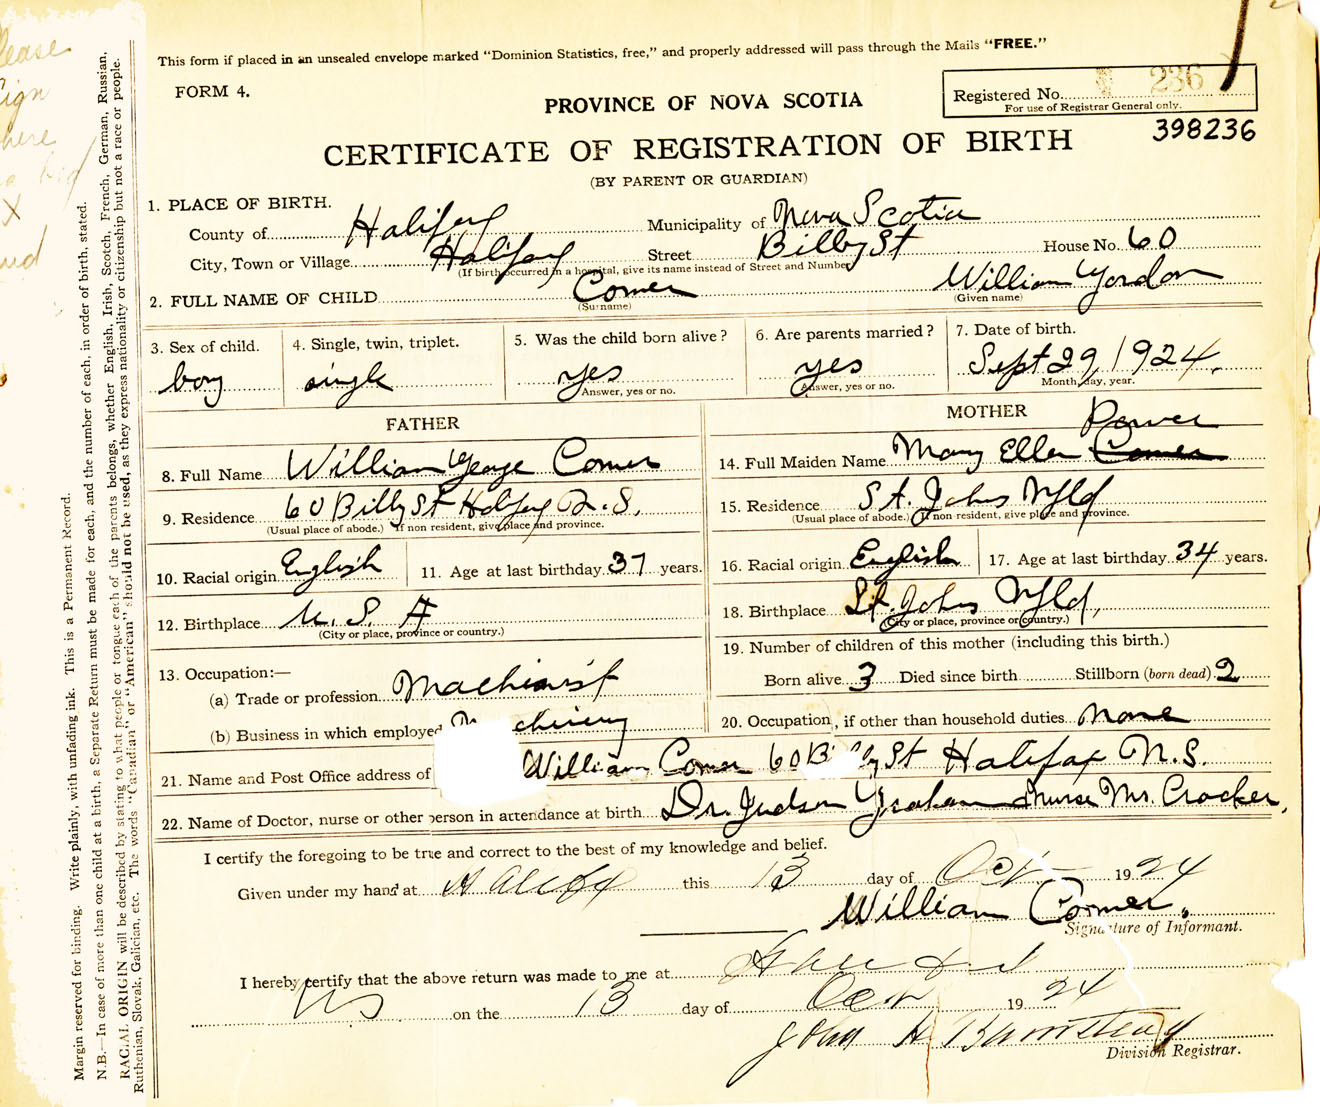 This form if placed in an unsealed envelope marked “Dominion Statistics, free,” and properly addressed will pass through the Mails “FREE.”
FORM 4.
Registered No. 236
For use of Registrar General only.
PROVINCE OF NOVA SCOTIA
398236
CERTIFICATE OF REGISTRATION OF BIRTH
(BY PARENT OR GUARDIAN)
1. PLACE OF BIRTH.
County of Halifax Municipality of Nova Scotia
City, Town or Village Halifax Street Bilby St House No. 60
(If birth occurred in a hospital, give its name instead of Street and Number)
2. FULL NAME OF CHILD Comer William Gordon
(Surname) (Given name)
3. Sex of child. 4. Single, twin, triplet. 5. Was the child born alive? 6. Are parents married? 7. Date of birth.
boy single yes yes Sept 29, 1924.
Answer, yes or no. Answer, yes or no. Month, day, year.
FATHER
8. Full Name William George Comer
9. Residence 60 Bilby St Halifax N.S.
(Usual place of abode.) If non resident, give place and province.
10. Racial origin English 11. Age at last birthday 37 years.
12. Birthplace U.S.A
(City or place, province or country.)
13. Occupation:—
(a) Trade or profession Machinist
(b) Business in which employed chinery
MOTHER
Power
14. Full Maiden Name Mary Ellen Comer
15. Residence St. Johns Nfld
(Usual place of abode.) If non-resident, give place and province.
16. Racial origin English 17. Age at last birthday 34 years.
18. Birthplace St. Johns Nfld,
(City or place, province or country.)
19. Number of children of this mother (including this birth.)
Born alive 3 Died since birth Stillborn (born dead) 2
20. Occupation, if other than household duties None
21. Name and Post Office address of William Comer 60 Bilby St Halifax N.S.
22. Name of Doctor, nurse or other person in attendance at birth Dr. Judson Graham Nurse Mrs. Crocker,
I certify the foregoing to be true and correct to the best of my knowledge and belief.
Given under my hand at Halifax this 13 day of Oct 1924
William Comer.
Signature of Informant.
I hereby certify that the above return was made to me at Halifax
NS on the 13 day of Oct 1924
John H Barnstead
Division Registrar.
Margin reserved for binding. Write plainly, with unfading ink. This is a Permanent Record.
N.B.—In case of more than one child at a birth, a Separate Return must be made for each, and the number of each, in order of birth, stated.
RACIAL ORIGIN will be described by stating to what people or tongue each of the parents belongs, whether English, Irish, Scotch, French, German, Russian,
Ruthenian, Slovak, Galician, etc. The words “Canadian” or “American” should not be used, as they express nationality or citizenship but not a race or people.
lease
sign
here
X